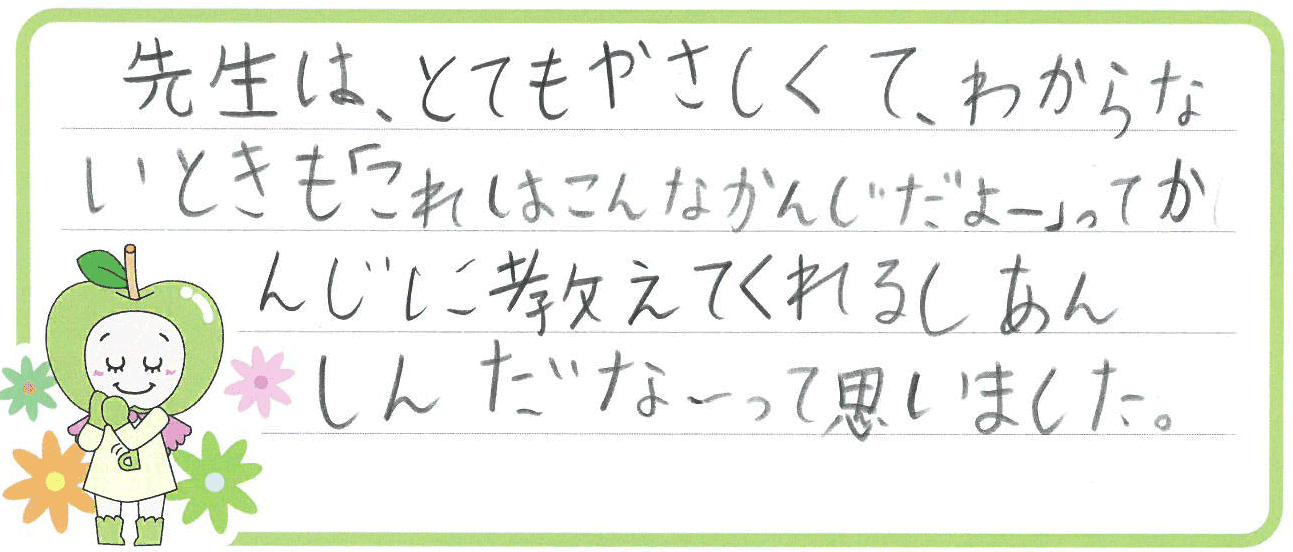 先生は、とてもやさしくて、わからな
いときも「これはこんなかんじだよー」ってか
んじに教えてくれるしあん
しんだなーって思いました。